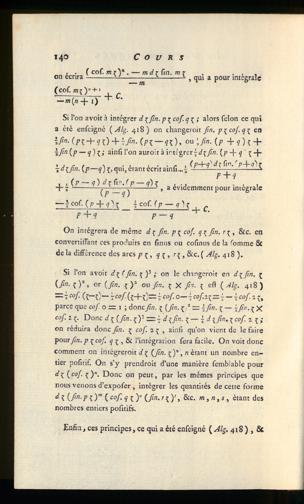 140 COURS
on écrira (coſ. mz)ⁿ. — m dz ſin. mz / —m, qui a pour intégrale
(coſ. mz)ⁿ⁺¹ / —m(n+1) + C.
Si l'on avoit à intégrer dz ſin. pz coſ. qz; alors ſelon ce qui
a été enſeigné (Alg. 418) on changeroit ſin. pz coſ. qz en
½ ſin. (pz + qz) + ½ ſin. (pz — qz), ou ½ ſin. (p + q) z +
½ ſin (p — q) z; ainſi l'on auroit à intégrer ½ dz ſin. (p + q) z +
½ dz ſin. (p—q) z, qui, étant écrit ainſi... ½ (p+q) dz ſin. (p+q) z / p + q
+ ½ (p — q) dz ſin. (p — q) z / (p — q), a évidemment pour intégrale
— ½ coſ. (p + q) z / p + q — ½ coſ. (p — q) z / p — q + C.
On intégrera de même dz ſin. pz coſ. qz ſin. rz, &c. en
convertiſſant ces produits en ſinus ou coſinus de la ſomme &
de la différence des arcs pz, qz, rz, &c. (Alg. 418).
Si l'on avoit dz (ſin. z)³; on le changeroit en dz ſin. z
(ſin. z)², or (ſin. z)² ou ſin. z × ſin. z eſt (Alg. 418)
= ½ coſ. (z—z) — ½ coſ. (z+z) = ½ coſ. 0 — ½ coſ. 2z = ½ — ½ coſ. 2z,
parce que coſ. 0 = 1; donc ſin. z (ſin. z)² = ½ ſin. z — ½ ſin. z ×
coſ. 2z. Donc dz (ſin. z)³ = ½ dz ſin. z — ½ dz ſin. z coſ. 2z;
on réduira donc ſin. z coſ. 2z, ainſi qu'on vient de le faire
pour ſin. pz coſ. qz, & l'intégration ſera facile. On voit donc
comment on intégreroit dz (ſin. z)ⁿ, n étant un nombre en-
tier poſitif. On s'y prendroit d'une manière ſemblable pour
dz (coſ. z)ⁿ. Donc on peut, par les mêmes principes que
nous venons d'expoſer, intégrer les quantités de cette forme
dz (ſin. pz)ᵐ (coſ. qz)ⁿ (ſin. rz)ˢ, &c. m, n, s, étant des
nombres entiers poſitifs.
Enfin, ces principes, ce qui a été enſeigné (Alg. 418), &